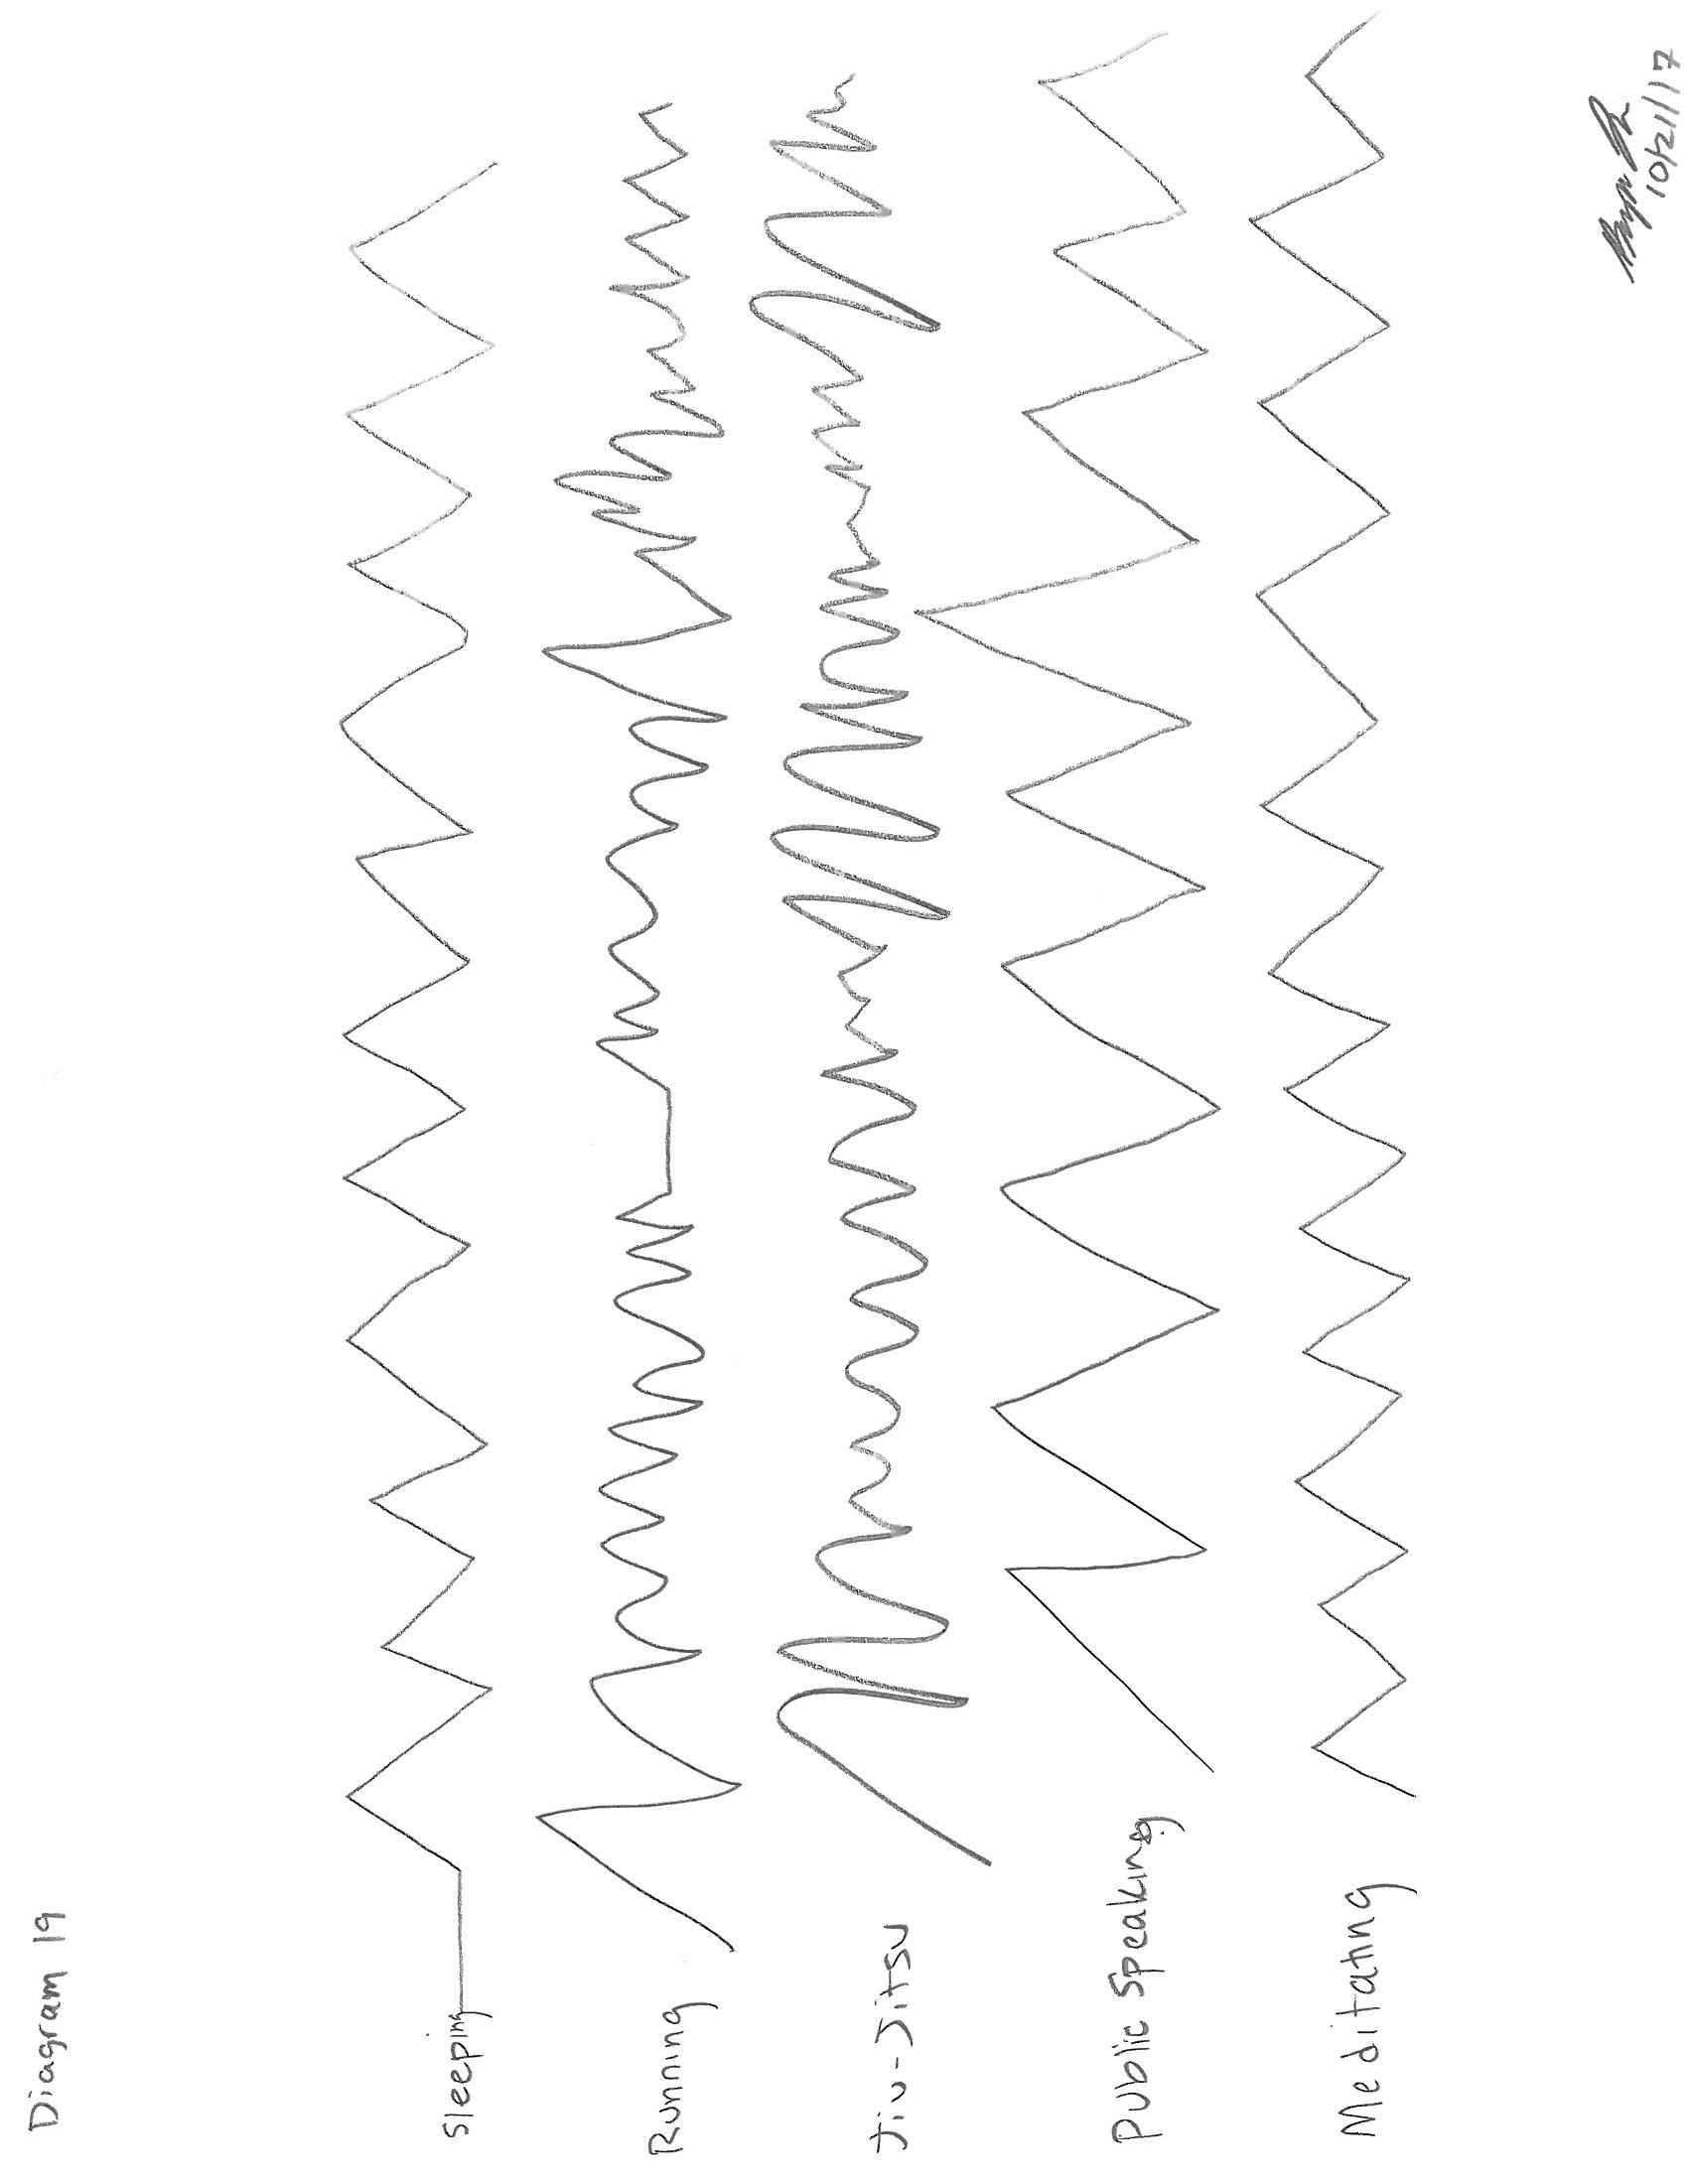 Diagram 19
Sleeping
Running
Jiu-Jitsu
Public Speaking
Meditating
10/21/17